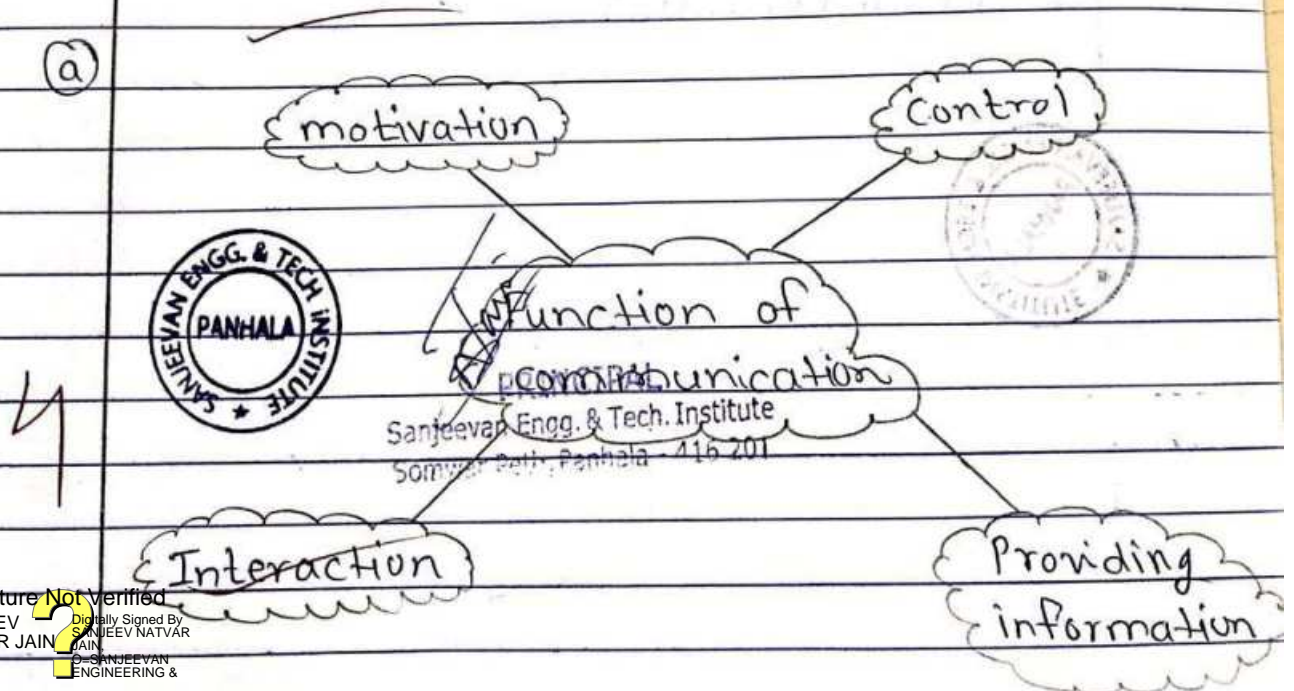 a
motivation
Control
SANJEEVAN ENGG. & TECH INSTITUTE
PANHALA
Function of
communication
PRINCIPAL
Sanjeevan Engg. & Tech. Institute
Somwar Peth, Panhala - 416 201
4
Interaction
Providing
information
ture Not Verified
EV
R JAIN
Digitally Signed By
SANJEEV NATVAR
JAIN,
O=SANJEEVAN
ENGINEERING &